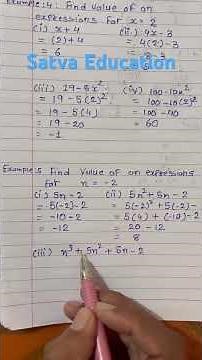 Example:4. Find value of an
expressions for x = 2
(i) x + 4 (ii) 4x - 3
= (2) + 4 = 4(2) - 3
= 6
Satva Education
(iii) 19 - 5x² (iv) 100 - 10x²
= 19 - 5(2)² = 100 - 10(2)²
= 19 - 5(4) = 100 - 40
= 19 - 20 = 60
= -1
Example:5 Find Value of an expressions
for n = -2
(i) 5n - 2 (ii) 5n² + 5n - 2
= 5(-2) - 2 = 5(-2)² + 5(-2) -
= -10 - 2 = 5(4) + (-10) - 2
= -12 = 20 - 12
= 8
(iii) n³ + 5n² + 5n - 2